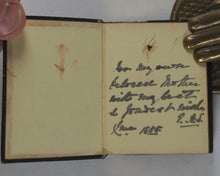 For my own
beloved Mother
with my best
& fondest wishes
Xmas 1885